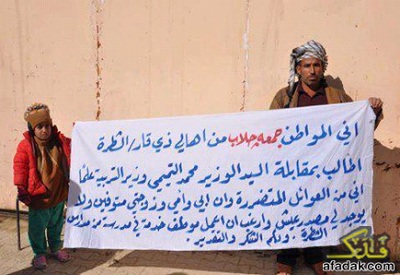 اني المواطن جمعه جلاب من اهالي ذي قار/الشطرة
اطالب بمقابلة السيد الوزير محمد التميمي وزير التربية علماً
اني من العوائل المتضررة وان ابي وامي وزوجتي متوفين ولا
يوجد لي مصدر عيش وارغب ان اعمل موظف خدمة في مدرسة من مدارس
الشطرة. ولكم الشكر والتقدير.
afadak.com